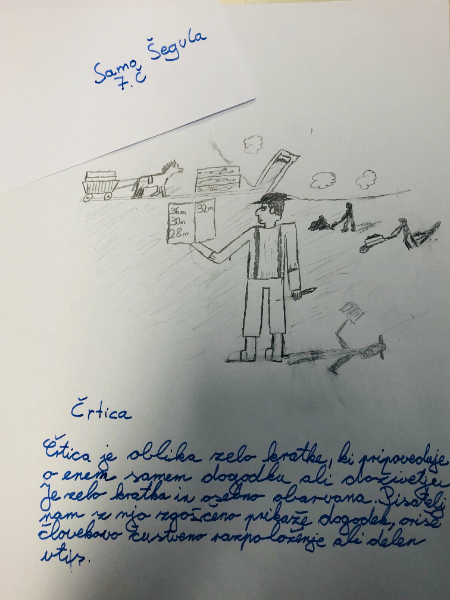 Samo Šegula
7. Č
36m 32m
30m
28m
Črtica
Črtica je oblika zelo kratke, ki pripoveduje
o enem samem dogodku ali doživetju.
Je zelo kratka in osebno obarvana. Pisatelj
nam z njo zgoščeno prikaže dogodek, oriše
človekovo čustveno razpoloženje ali delen
utis.